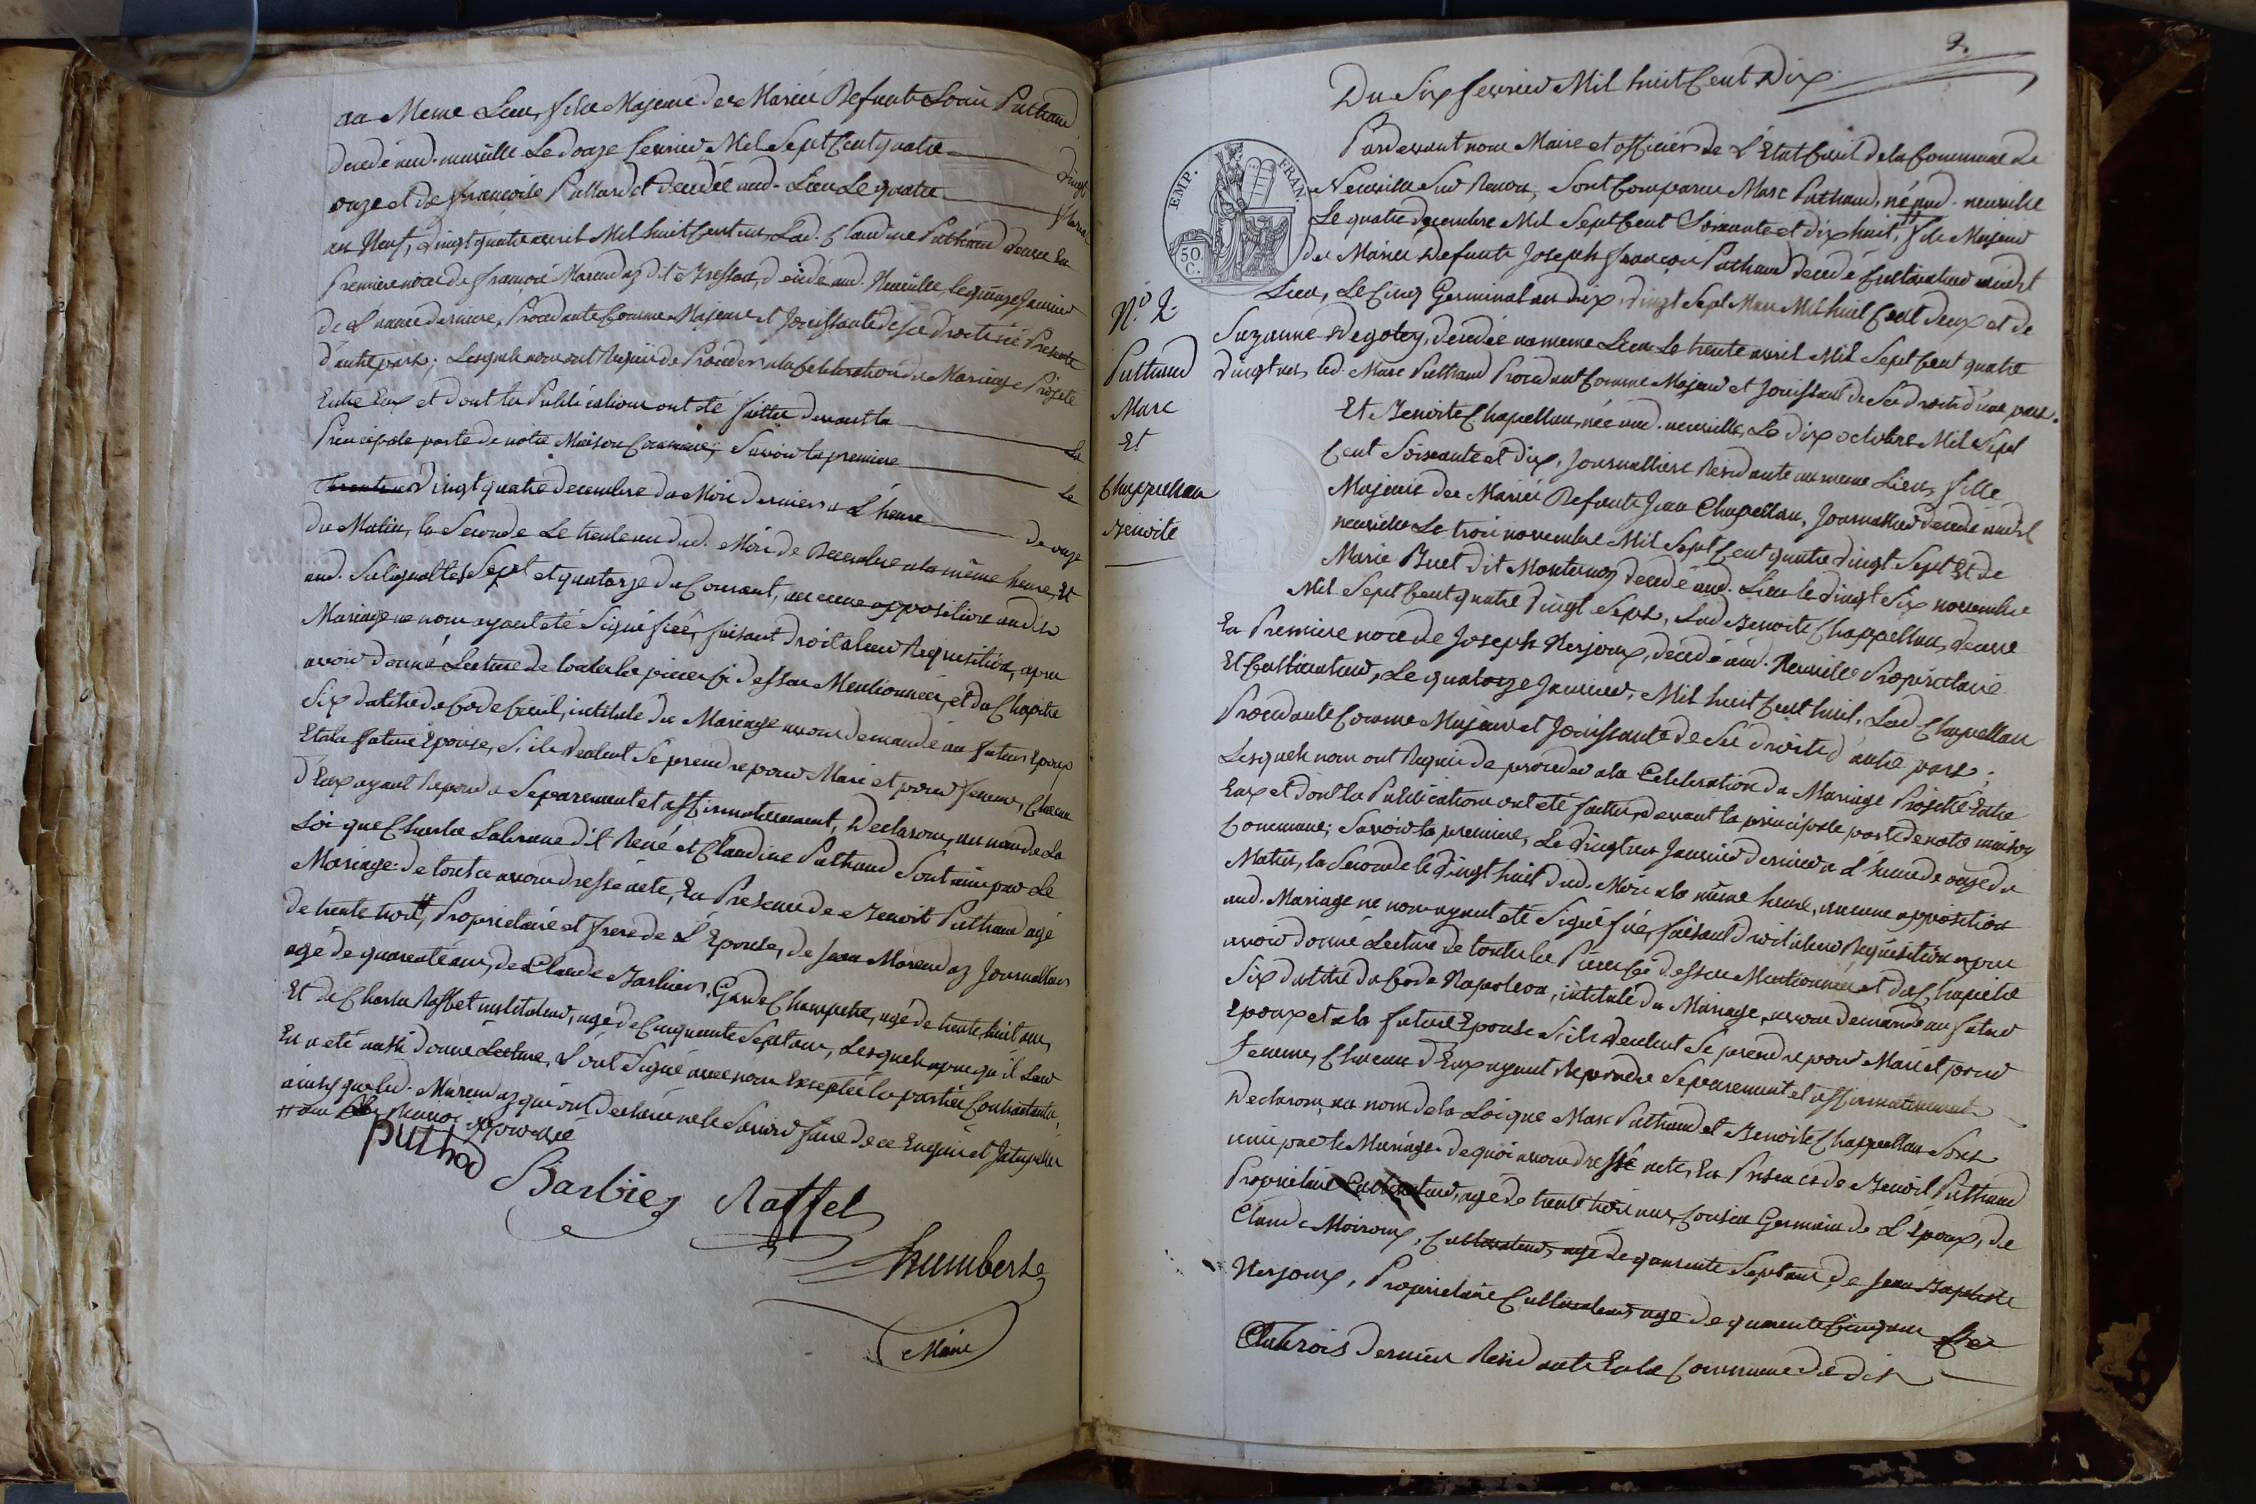 au Meme Lieu, fille Majeure des Mariés Defunts Louis Puthaud
decedé aud. neuville Le douze fevrier Mil Sept Cent quatre vingt
onze et de françoise Pallardet decedée aud. Lieu Le quatre floreal
an Neuf, vingt quatre avril Mil huit Cent un, Lad. Claudine Puthaud veuve En
Premiere noce de françois Marendaz dit Bressan, decedé aud. Neuville, le quinze Janvier
de L'année derniere, Procedante Comme Majeure et Jouissante de ses droits ici Presente
d'autre part; Lesquels nous ont Requis de Proceder a la Celebration du Mariage Projeté
Entre Eux et dont les Publications ont été faittes devant la
Principale porte de notre Maison Commune; Savoir la premiere Le
vingt quatre decembre du Mois dernier a L'heure de onze
du Matin, la Seconde Le trente un dud. Mois de Decembre a la même heure, Et
aud. Sept et quatorze du Courant, aucune opposition aud.
Mariage ne nous ayant été Signifiée, faisant droit a leur Requisition, apres
avoir donné Lecture de toutes les pieces Ci dessus Mentionnées, et du Chapitre
Six du titre du Code Civil, intitulé du Mariage avons demandé au futur Epoux
Et a la future Epouse, S'ils veulent Se prendre pour Mari et pour femme, Chacun
d'Eux ayant Repondu Separement et affirmativement, Declarons, au nom de La
Loi que Charles dit René et Claudine Puthaud Sont unis par Le
Mariage. de tout ce avons dressé acte, En Presence de Benoit Puthaud agé
de trente trois, Proprietaire et frere de L'Epouse, de Jean Marendaz Journallier
agé de quarente ans, de Claude Barbier, Garde Champetre, agé de trente huit ans,
Et de Charles Raffet instituteur, agé de Cinquante Sept ans, Lesquels apres qu'il Leur
En a été aussi donné Lecture, L'ont Signé avec nous Excepté les parties Contractantes,
ainsy que led. Marendaz qui ont declaré ne le Savoir faire de ce Enquis et Interpellés
puthod
Barbier Raffet
humbert
Maire
2.
Du Six fevrier Mil huit Cent Dix
Pardevant nous Maire et officier de L'Etat Civil de la Commune de
EMP. FRAN.
50 C.
Neuville Sur Renon, Sont Comparus Marc Puthaud, né aud. neuville
Le quatre decembre Mil Sept Cent Soixante et dix huit, fils Majeur
des Mariés Defunts Joseph françois Puthaud decedé Cultivateur audit
Lieu, Le Cinq Germinal an dix, vingt Sept Mars Mil huit Cent deux et de
Suzanne Degoley, decedée au meme Lieu Le trente avril Mil Sept Cent quatre
vingt un, led. Marc Puthaud Procedant Comme Majeur et Jouissant de Ses Droits d'une part.
N.º 2.
Puthaud
Marc
Et
Chappellan
Benoite
Et Benoite Chapellan, née aud. neuville, Le dix octobre Mil Sept
Cent Soixante et dix, Journalliere Residante au meme Lieu, fille
Majeure des Mariés Defunts Jean Chapellan, Journallier decedé audit
neuville Le trois novembre Mil Sept Cent quatre vingt Sept Et de
Marie Buet dit Monternoz decedé aud. Lieu le vingt Six novembre
Mil Sept Cent quatre vingt Sept, Lad. Benoite Chappellan, veuve
En Premiere noce de Joseph Nerjoux, decedé aud. Neuville Proprietaire
Et Cultivateur, Le quatorze Janvier, Mil huit Cent huit, Lad. Chapellan
Procedante Comme Majeure et Jouissante de Ses droits d'autre part;
Lesquels nous ont Requis de proceder a la Celebration du Mariage Projetté Entre
Eux et dont les Publications ont été faittes, devant la principale porte de notre maison
Commune; Savoir la premiere, Le vingt un Janvier dernier a L'heure de onze du
Matin, la Seconde le vingt huit dud. Mois a la même heure, aucune opposition
aud. Mariage ne nous ayant été Signifiée, faisant droit a leur Requisition apres
avoir donné Lecture de toutes les Pieces Ci dessus Mentionnées et du Chapitre
Six du titre du Code Napoleon, intitulé du Mariage, avons demandé au futur
Epoux et a la future Epouse S'ils Veulent Se prendre pour Mari et pour
femme, Chacun d'Eux ayant Repondu Separement et affirmativement
Declarons, au nom de la Loi que Marc Puthaud et Benoite Chappellan Sont
unis par le Mariage. de quoi avons dressé acte, En Presences de Benoit Puthaud
Proprietaire Cultivateur, agé de trente trois ans, Cousin Germain de L'époux, de
Claude Moiroux, Cultivateur, agé de quarente Sept ans, de Jean Baptiste
Nerjoux, Proprietaire Cultivateur, agé de quarente Cinq ans
Les trois derniers Residants En la Commune de dit